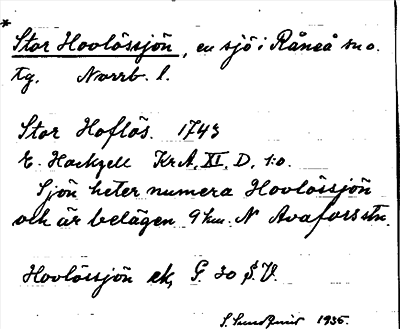 *
Stor Hovlössjön, en sjö i Råneå sn o.
tg. Norrb. l.
Stor Hoflös. 1743
E. Hackzell KrA, XI, D, 1:o.
Sjön heter numera Hovlössjön
och är belägen 9 km. N Avafors stn.
Hovlössjön ek, G. 30 S.V.
1935.